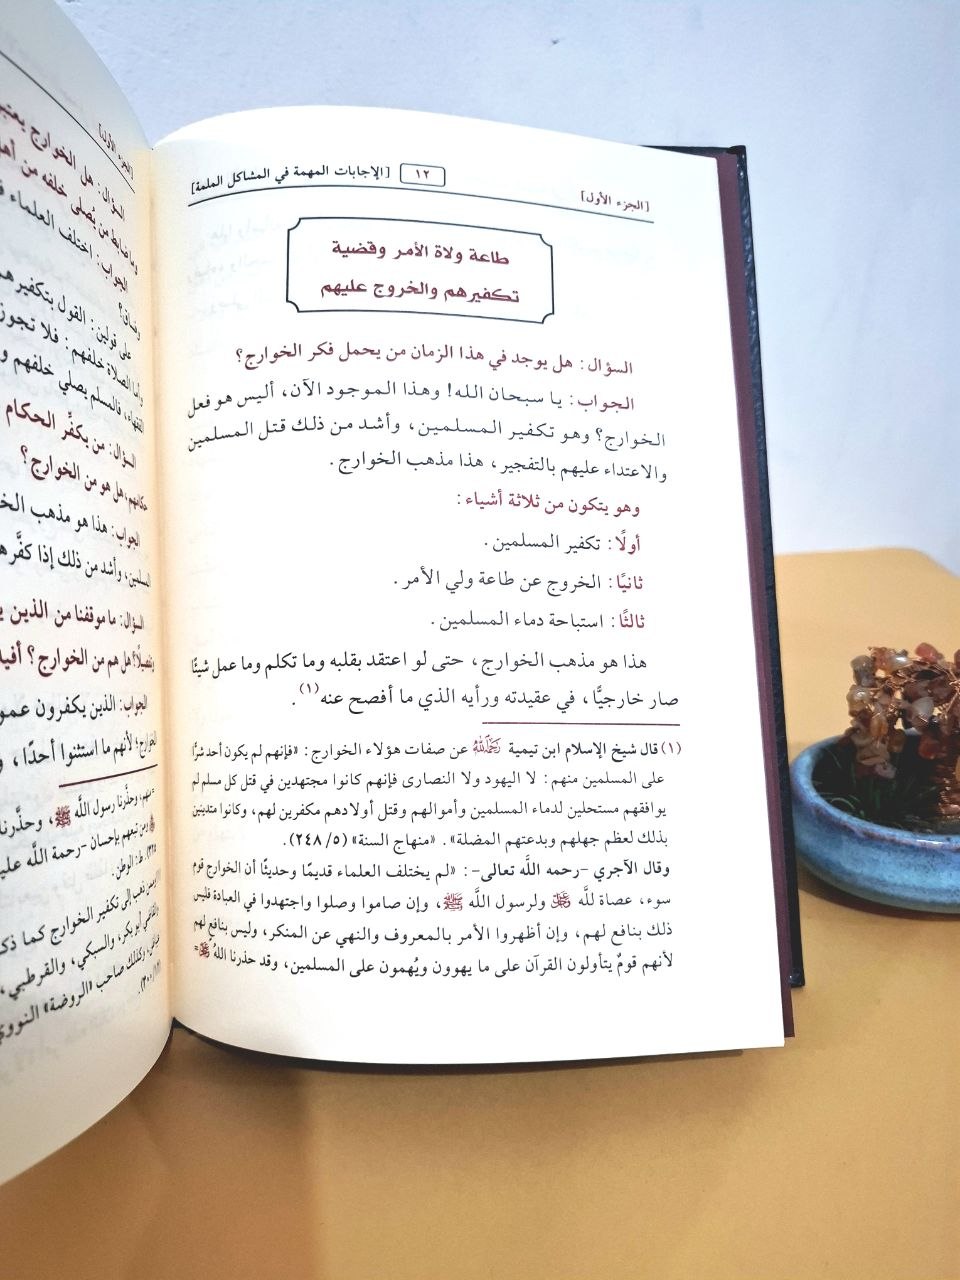 [الجزء الأول]
١٢
[الإجابات المهمة في المشاكل الملمة]
طاعة ولاة الأمر وقضية
تكفيرهم والخروج عليهم
السؤال: هل يوجد في هذا الزمان من يحمل فكر الخوارج؟
الجواب: يا سبحان الله! وهذا الموجود الآن، أليس هو فعل
الخوارج؟ وهو تكفير المسلمين، وأشد من ذلك قتل المسلمين
والاعتداء عليهم بالتفجير، هذا مذهب الخوارج.
وهو يتكون من ثلاثة أشياء:
أولًا: تكفير المسلمين.
ثانيًا: الخروج عن طاعة ولي الأمر.
ثالثًا: استباحة دماء المسلمين.
هذا هو مذهب الخوارج، حتى لو اعتقد بقلبه وما تكلم وما عمل شيئًا
صار خارجيًّا، في عقيدته ورأيه الذي ما أفصح عنه(١).
(١) قال شيخ الإسلام ابن تيمية رحمه الله عن صفات هؤلاء الخوارج: «فإنهم لم يكون أحد شرًّا
على المسلمين منهم: لا اليهود ولا النصارى فإنهم كانوا مجتهدين في قتل كل مسلم لم
يوافقهم مستحلين لدماء المسلمين وأموالهم وقتل أولادهم مكفرين لهم، وكانوا متدينين
بذلك لعظم جهلهم وبدعتهم المضلة». «منهاج السنة» (٥/ ٢٤٨).
وقال الآجري -رحمه اللَّه تعالى-: «لم يختلف العلماء قديمًا وحديثًا أن الخوارج قوم
سوء، عصاة للَّه ﷻ ولرسول اللَّه ﷺ، وإن صاموا وصلوا واجتهدوا في العبادة فليس
ذلك بنافع لهم، وإن أظهروا الأمر بالمعروف والنهي عن المنكر، وليس بنافع لهم
لأنهم قومٌ يتأولون القرآن على ما يهوون ويُهمون على المسلمين، وقد حذرنا الله ﷻ=
[الجزء الأول]
السؤال: هل الخوارج
وما ضابط من يُصلى خلفه من
الجواب: اختلف العلماء
وفساق؟
على قولين: القول بتكفيرهم
وأما الصلاة خلفهم: فلا تجوز
فالمسلم يصلي خلفهم
السؤال: من يكفِّر الحكام
حكامهم، هل هو من الخوارج؟
الجواب: هذا هو مذهب
المسلمين، وأشد من ذلك إذا
السؤال: ما موقفنا من الذين
هل هم من الخوارج؟
الجواب: الذين يكفرون
الخوارج؛ لأنهم ما استثنوا أحدًا،
=منهم، وحذَّرنا رسول اللَّه ﷺ،
بإحسان -رحمة اللَّه
ط: الوطن.
ذهب إلى تكفير الخوارج كما
والقاضي أبو بكر، والسبكي، والقرطبي،
وكذلك صاحب «الروضة»